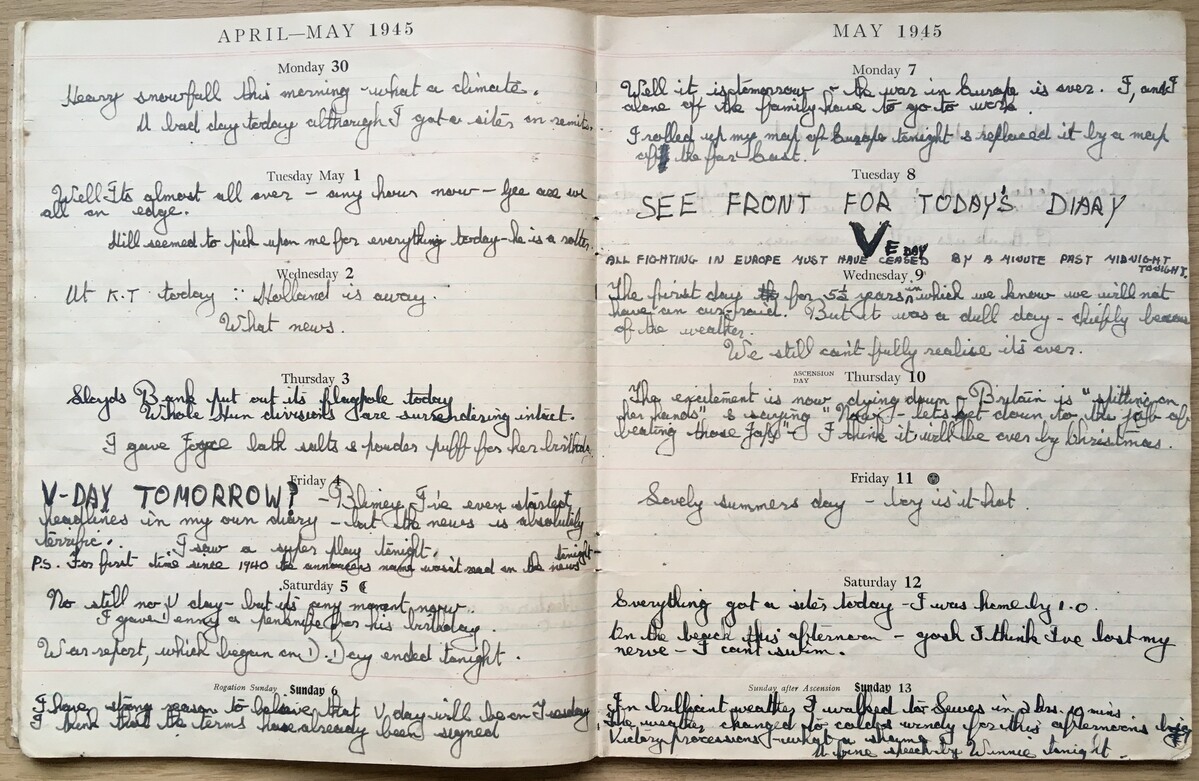 APRIL—MAY 1945
Monday 30
Heavy snowfall this morning - what a climate.
A bad day today although I got a sites on remits.
Tuesday May 1
Well It's almost all over - any hour now - Gee are we
all on edge.
Hill seemed to pick upon me for everything today - he is a rotter.
Wednesday 2
At K.T today :: Holland is away.
What news.
Thursday 3
Lloyds Bank put out its flagpole today
Whole Hun divisions are surrendering intact.
I gave Joyce bath salts & powder puff for her birthday.
Friday 4
V-DAY TOMORROW? - Blimey I've even started
headlines in my own diary - but the news is absolutely
terrific. I saw a super play tonight.
P.S. For first time since 1940 the announcers name wasn't read in the news tonight
Saturday 5
No still no V day - but it's any moment now.
I gave a penknife for his birthday.
War report, which began on D.Day ended tonight.
Rogation Sunday Sunday 6
I have strong reason to believe that V day will be on Tuesday
I think that the terms have already been signed
MAY 1945
Monday 7
Well it is tomorrow & the war in Europe is over. I, and I
alone of the family have to go to work.
I rolled up my map of Europe tonight & replaced it by a map
of the far East.
Tuesday 8
SEE FRONT FOR TODAY'S DIARY
VE DAY
ALL FIGHTING IN EUROPE MUST HAVE CEASED BY A MINUTE PAST MIDNIGHT
TONIGHT.
Wednesday 9
The first day for 5½ years in which we know we will not
have an air-raid. But it was a dull day - chiefly because
of the weather.
We still can't fully realise it's over.
ASCENSION DAY Thursday 10
The excitement is now dying down - Britain is "spitting on
her hands" & saying "Now - lets get down to the job of
beating those Japs" - I think it will be over by Christmas.
Friday 11
Lovely summers day - boy is it hot.
Saturday 12
Everything got a sites today - I was home by 1.0.
On the beach this afternoon - gosh I think I've lost my
nerve - I cant swim.
Sunday after Ascension Sunday 13
In brilliant weather I walked to Lewes in 2 hrs. 10 mins
The weather changed to cold & windy for this afternoons big
Victory processions - what a shame
A fine speech by Winnie tonight.